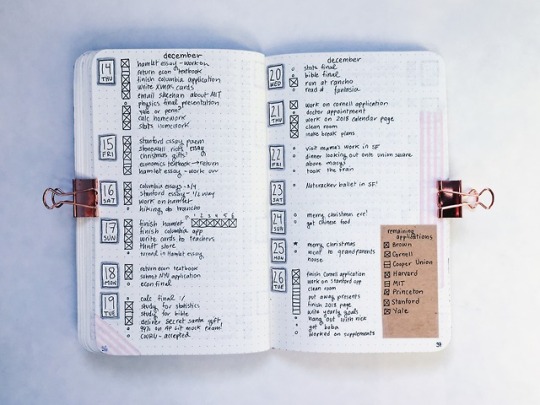 december
14
THU
hamlet essay - work on
return econ textbook
finish columbia application
write xmas cards
email sheehan about MIT
physics final presentation
calc homework
stats homework
15
FRI
stanford essay poem
stonewall riots essay
christmas gifts
economics textbook → return
hamlet essay - work on
16
SAT
columbia essays
stanford essay - 1/2 way
work on hamlet
hiking @ rancho
17
SUN
finish hamlet
1 2 3 4 5 6
finish columbia app
write cards to teachers
thrift store
turned in hamlet essay
18
MON
return econ textbook
submit NYU application
econ final
19
TUE
calc final
study for statistics
study for bible
deliver secret santa gift
94% on AP lit mock exam!
- accepted
36
december
20
WED
stats final
bible final
run at rancho
read at fantasia
21
THU
work on cornell application
doctor appointment
work on 2018 calendar page
clean room
make break plans
22
FRI
visit mama's work in SF
dinner looking out onto union square
above macys
took the train
23
SAT
Nutcracker ballet in SF!
24
SUN
merry christmas eve!
got chinese food
25
MON
merry christmas
went to grandparents
house
26
TUE
finish cornell application
work on stanford app
clean room
put away presents
finish 2018 page
write yearly goals
hang out with nice
got boba
worked on supplements
remaining
applications
Brown
Cornell
Cooper Union
Harvard
MIT
Princeton
Stanford
Yale